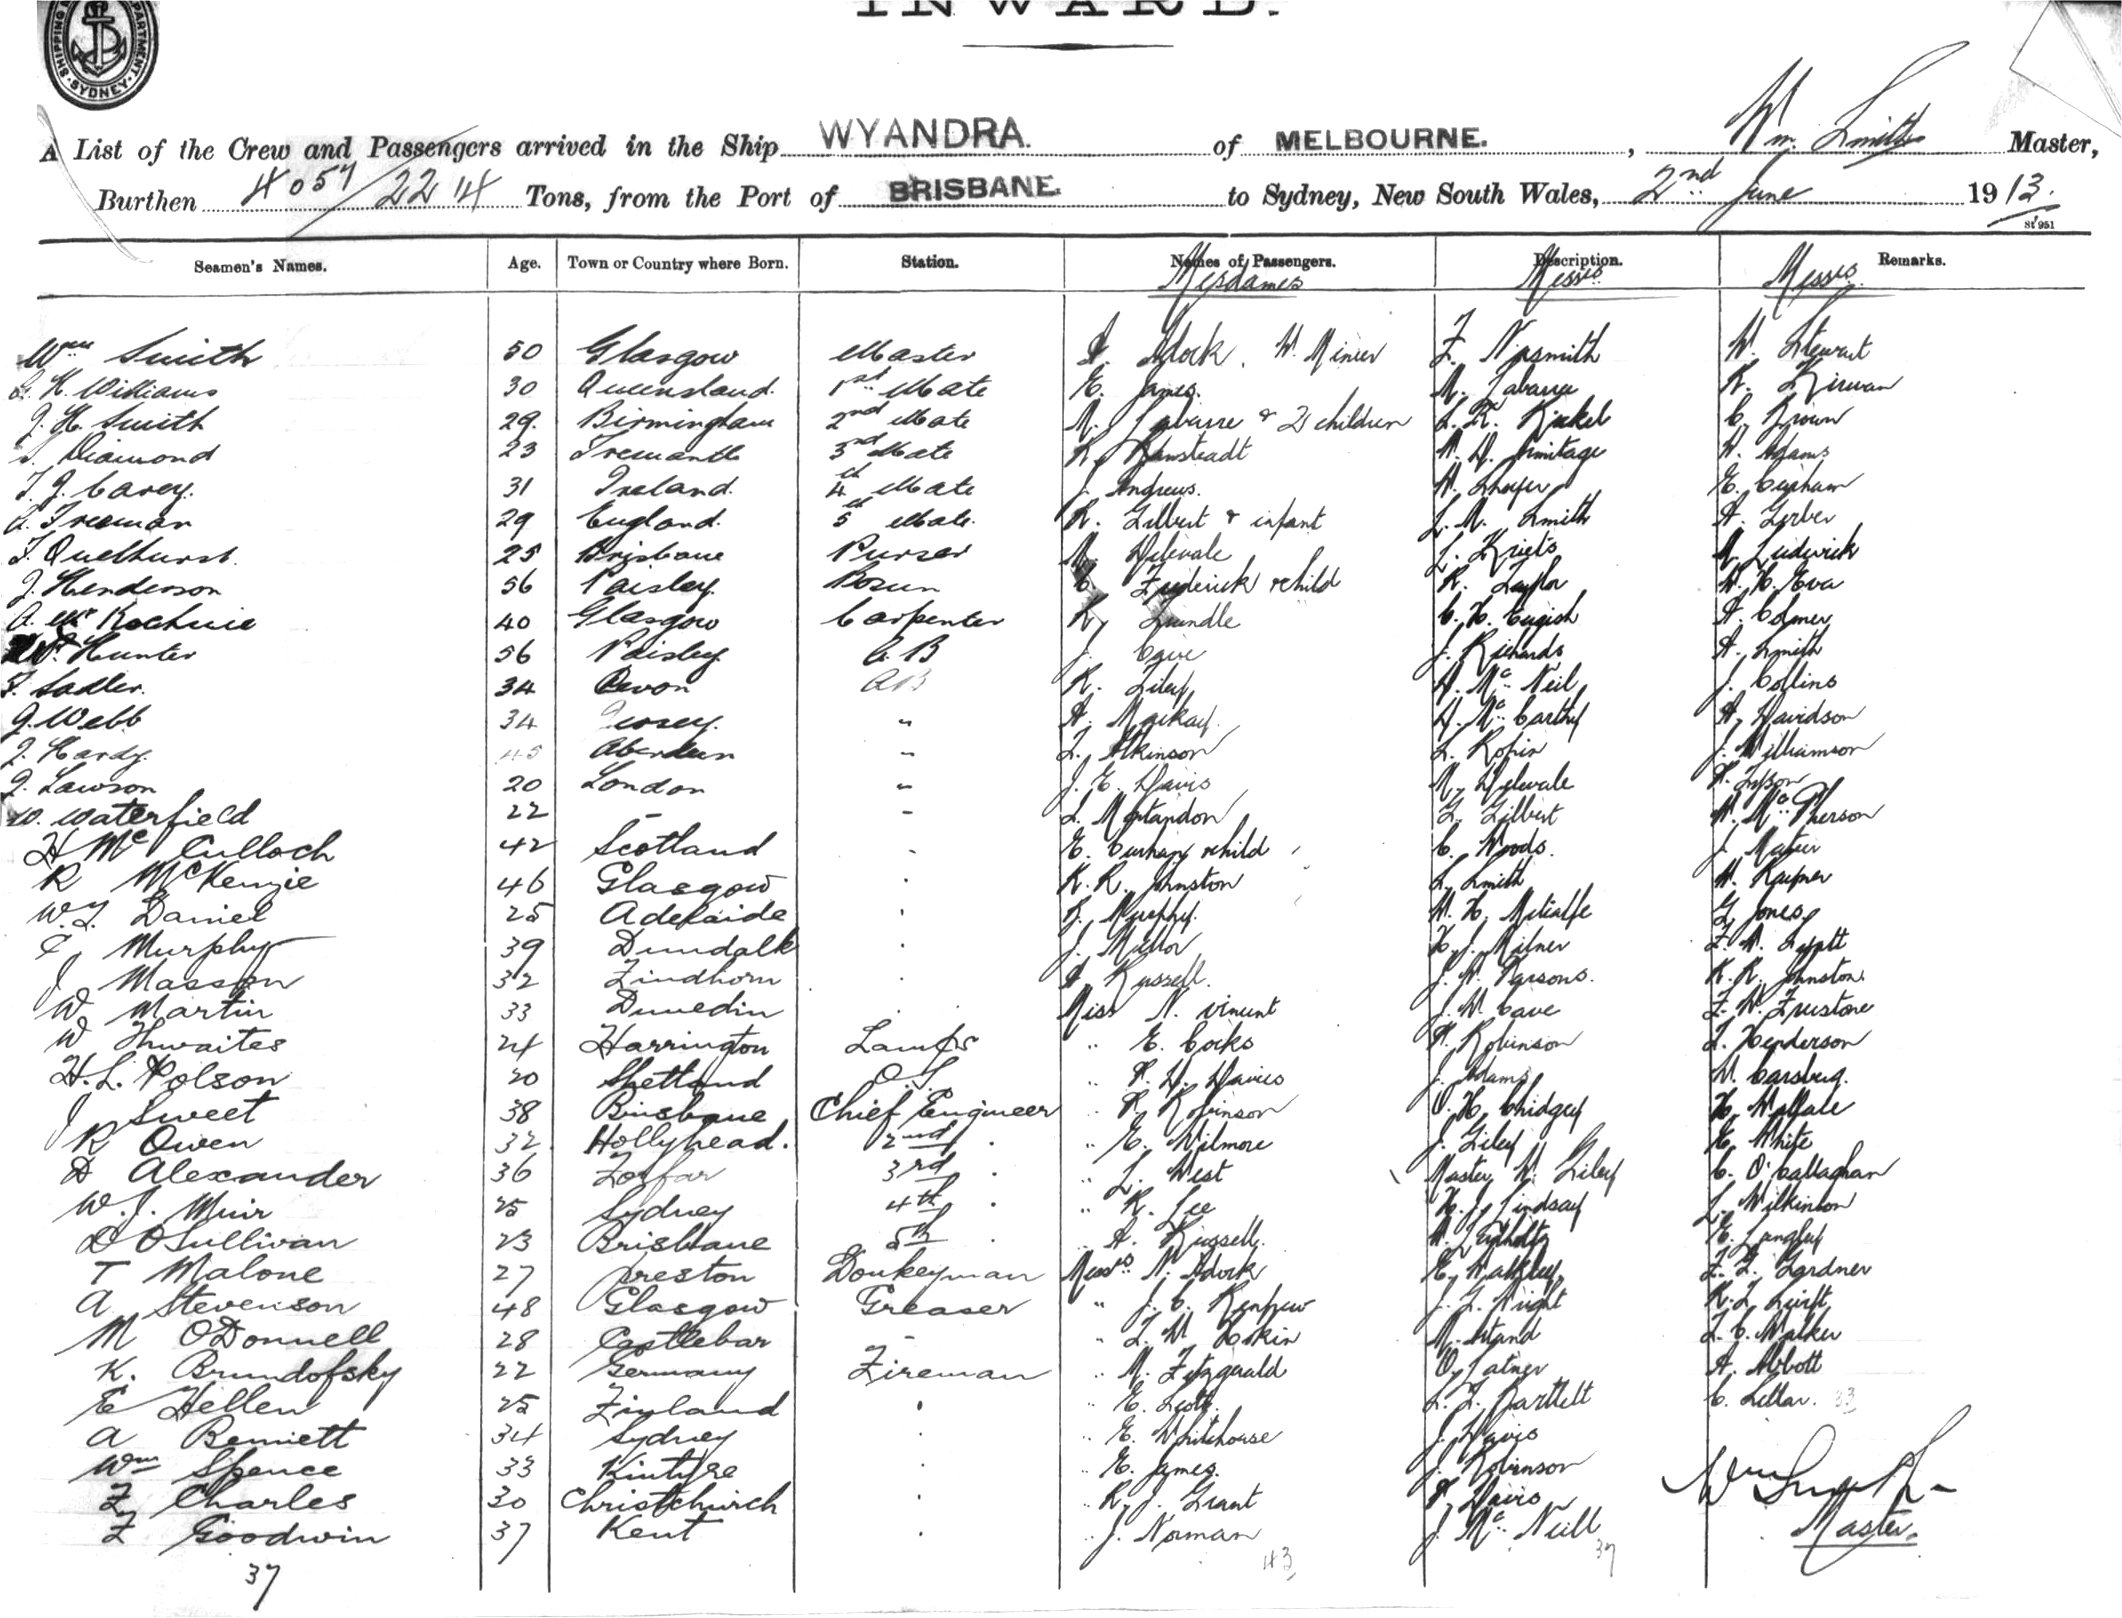 INWARD.
SHIPPING DEPARTMENT. SYDNEY
A List of the Crew and Passengers arrived in the Ship WYANDRA. of MELBOURNE. , Wm. Smith Master,
Burthen 4057/2214 Tons, from the Port of BRISBANE. to Sydney, New South Wales, 2nd June 1913.
St 951
Seamen's Names. Age. Town or Country where Born. Station. Names of Passengers. Description. Remarks.
Mesdames Messrs Messrs
Wm Smith 50 Glasgow Master Alock. W. Minser F. Nasmith W. Stewart
K. Williams 30 Queensland. 1st Mate E. James. M. Labarre R. Kirwan
J. H. Smith 29. Birmingham 2nd Mate M. Labarre & 2 children L. R. Rickel C. Brown
Diamond 23 Fremantle 3rd Mate Ransteadt A. D. Armitage Adams
T. J. Carey. 31 Ireland. 4th Mate J. Andrews. E. Curham
A. Freeman 29 England. 5th Mate. R. Gilbert & infant L. M. Smith A. Gerber
F. Quelhurst. 25 Brisbane Purser Delevale L. Kriets Ludwick
J. Henderson 56 Paisley. Bosun Frederick & child R. Taylor W. H. Eva
A. McKechnie 40 Glasgow Carpenter R. Trundle C. H. Eugish A. Colmer
Hunter 56 Paisley A.B J. Cave J. Richards A. Smith
F. Sadler. 34 Devon AB R. Liley D. McNeil J. Collins
J. Webb 34 Jersey. " A. Mackay. D. McCarthy A. Davidson
J. Hardy. 45 Aberdeen " L. Atkinson L. Rofin J. Williamson
J. Lawson 20 London " J. E. Davis M. Delevale Tyson
W. Waterfield 22 " - L. Montandon G. Gilbert W. McPherson
H McCulloch 42 Scotland . E. Curham & child C. Woods. J. Mater
R McKenzie 46 Glasgow . R. R. Johnston L. Smith W. Rayner
W. T. Daniel 25 Adelaide . Murphy. W. H. Metcalfe G. Jones.
C Murphy 39 Dundalk . J. Mellor H. J. Milner F. A. Lyatt
J Masson 32 Findhorn . A Russell. J. W. Parsons. R. R. Johnston.
W Martin 33 Dunedin . Miss N. Vincent J. W. Cave F. W. Freestone
W Thwaites 24 Harrington Lamps " E. Cocks Robinson L. Henderson
H. L. Polson 20 Shetland O.S. " Davies J. Adams W. Carsberg.
J Sweet 38 Brisbane Chief Engineer " R. Robinson O. H. Chidgey H. Wallace
R Owen 32. Hollyhead. 2nd . " E. Wilmore J. Liley E. White
D Alexander 36 Forfar 3rd . " L. West Master W. Liley C. O'Callaghan
W. J. Muir 25 Sydney 4th . " R. Lee H. J. Lindsay L. Wilkinson
D O'Sullivan 23 Brisbane 5th . " A. Russell. E. Langley
T Malone 27 Preston Donkeyman Messrs N. Adock E. Walkley F. F. Gardner
A Stevenson 48 Glasgow Greaser " J. C. Renfrew J. G. Wright R. L. Swift
M O'Donnell 28 Castlebar - " L. W. Hoskin L. C. Walker
K. Brundofsky 22 Germany Fireman " M. Fitzgerald O. Latner A. Abbott
E Hellen 25 Finland . " E. Scott. L. F. Bartlett C. Sellar. 33
A Bennett 34 Sydney . " E. Whitehouse J. Davis
Wm Spence 33 Kintyre . " E. James. J. Robinson Wm Smith
F Charles 30 Christchurch . " R. J. Grant Davis
F Goodwin 37 Kent . " J. Norman J. McNeill Master.
37 43 37